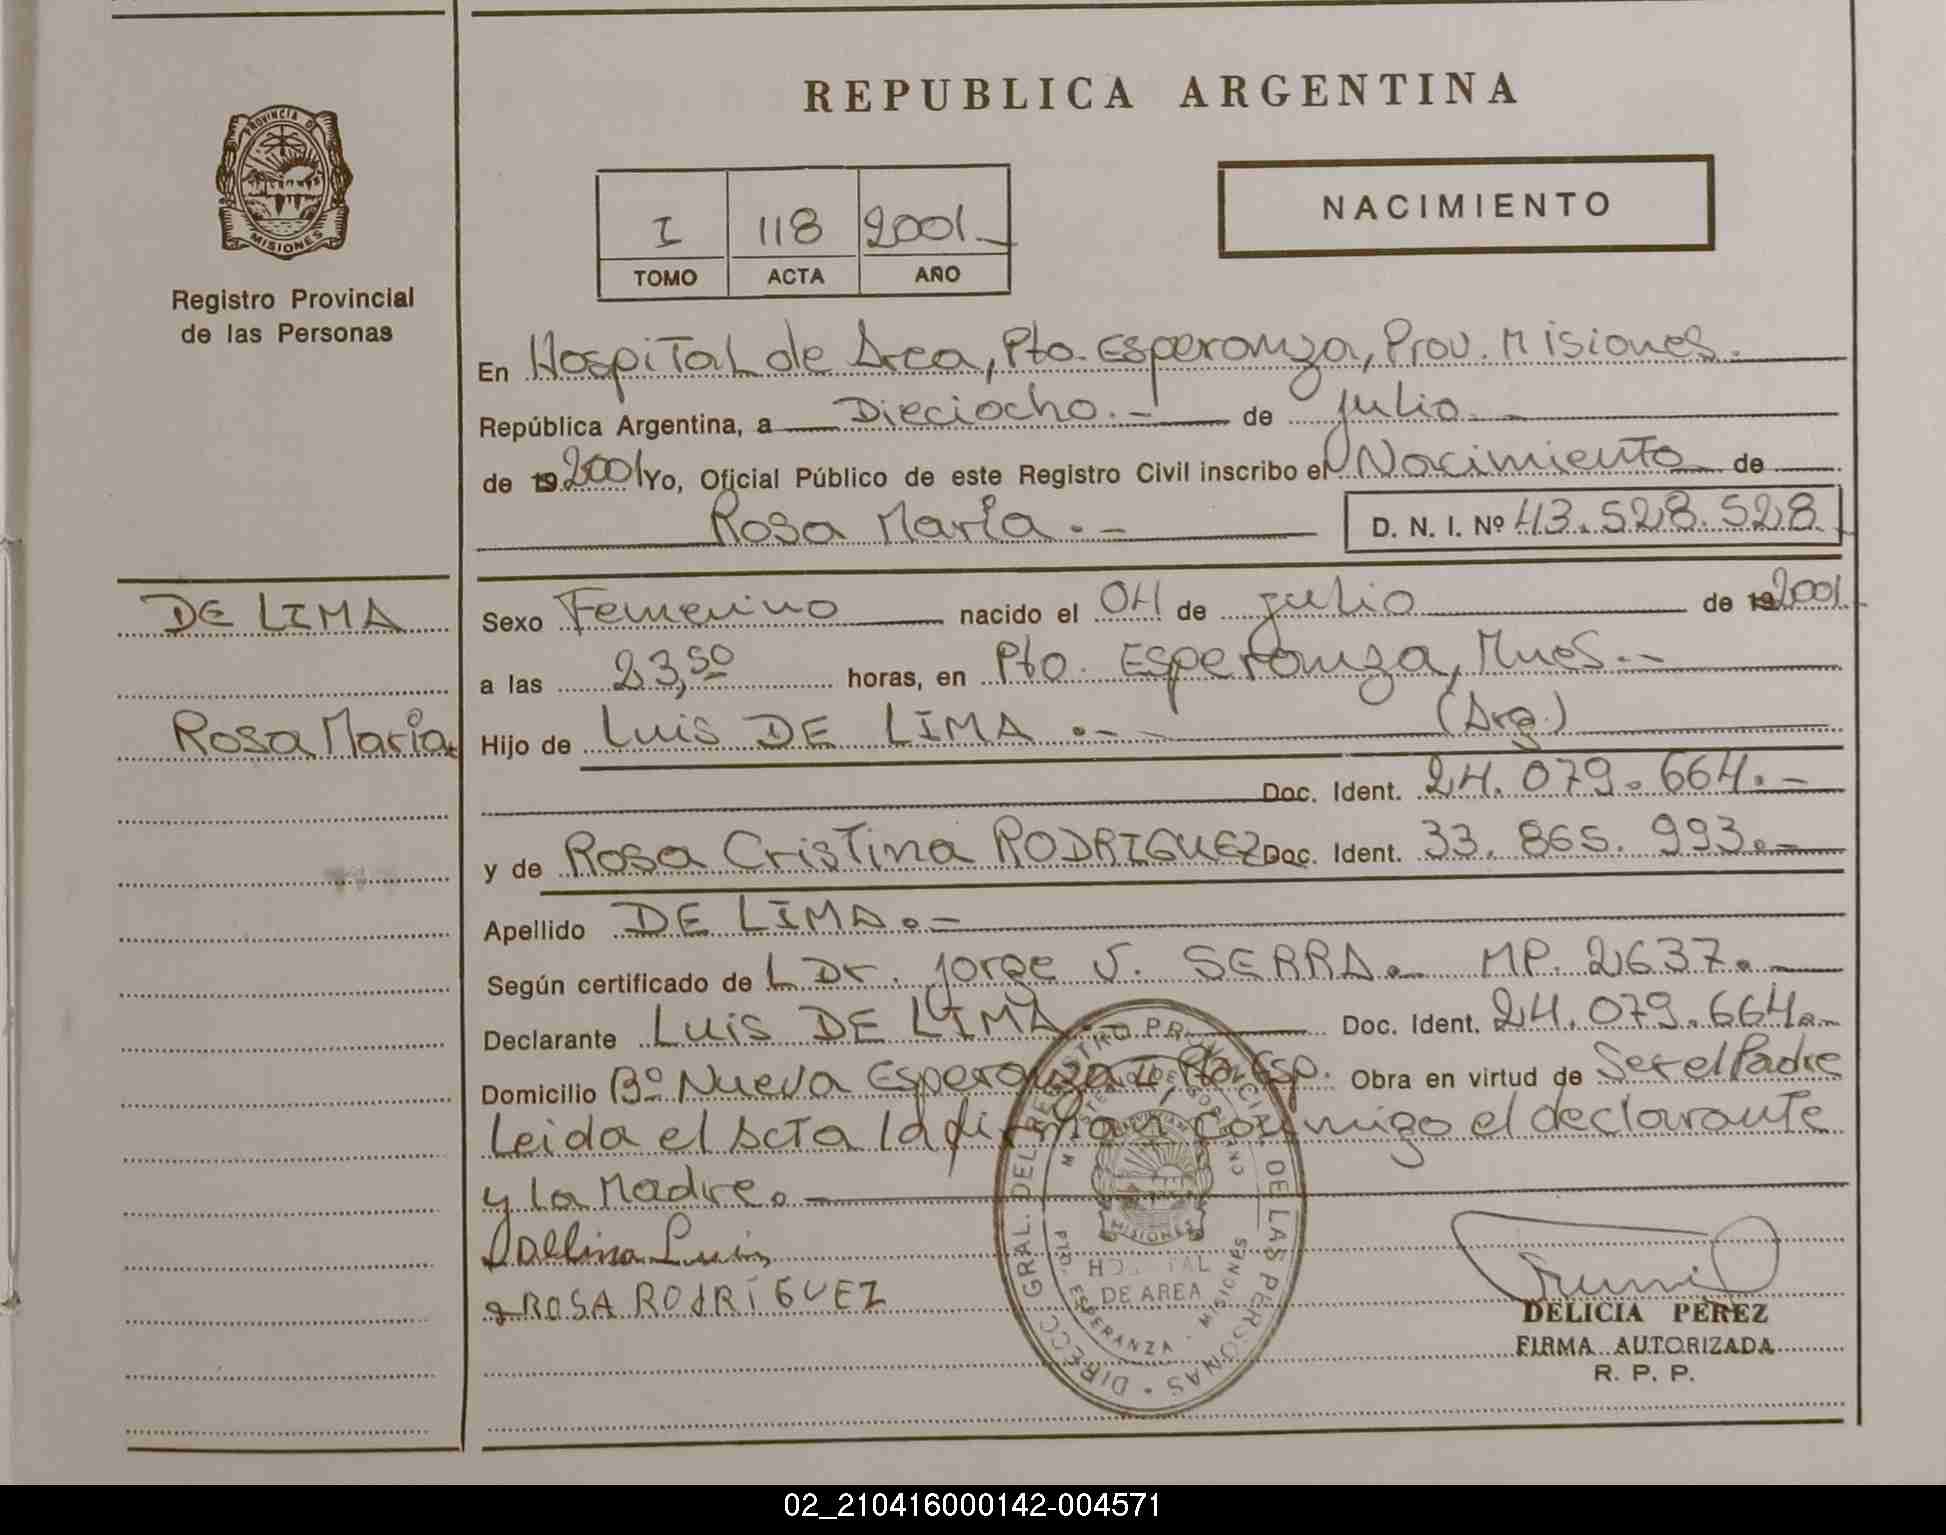 REPUBLICA ARGENTINA
PROVINCIA DE
MISIONES
Registro Provincial
de las Personas
I 118 2001.-
TOMO ACTA AÑO
NACIMIENTO
En Hospital de Area, Pto. Esperanza, Prov. Misiones.
República Argentina, a Dieciocho.- de julio.-
de 19 2001 Yo, Oficial Público de este Registro Civil inscribo el Nacimiento de
Rosa María.-
D. N. I. Nº 43.528.528
DE LIMA
Rosa María
Sexo Femenino nacido el 04 de julio de 19 2001
a las 23,50 horas, en Pto. Esperanza, Mnes.-
Hijo de Luis DE LIMA.- (Arg.)
Doc. Ident. 24.079.664.-
y de Rosa Cristina RODRIGUEZ Doc. Ident. 33.865.993.-
Apellido DE LIMA.-
Según certificado de L Dr. Jorge V. SERRA. MP. 2637.-
Declarante LUIS DE LIMA.- Doc. Ident. 24.079.664.-
Domicilio Bº Nueva Esperanza I, Pto. Esp. Obra en virtud de Ser el Padre
Leida el Acta la firman conmigo el declarante
y la Madre.-
Luis
ROSA RODRÍGUEZ
DIRECC. GRAL. DEL REGISTRO PROVINCIAL DE LAS PERSONAS
MISIONES
HOSPITAL
DE AREA
PTO. ESPERANZA - MISIONES
DELICIA PEREZ
FIRMA AUTORIZADA
R. P. P.
02_210416000142-004571